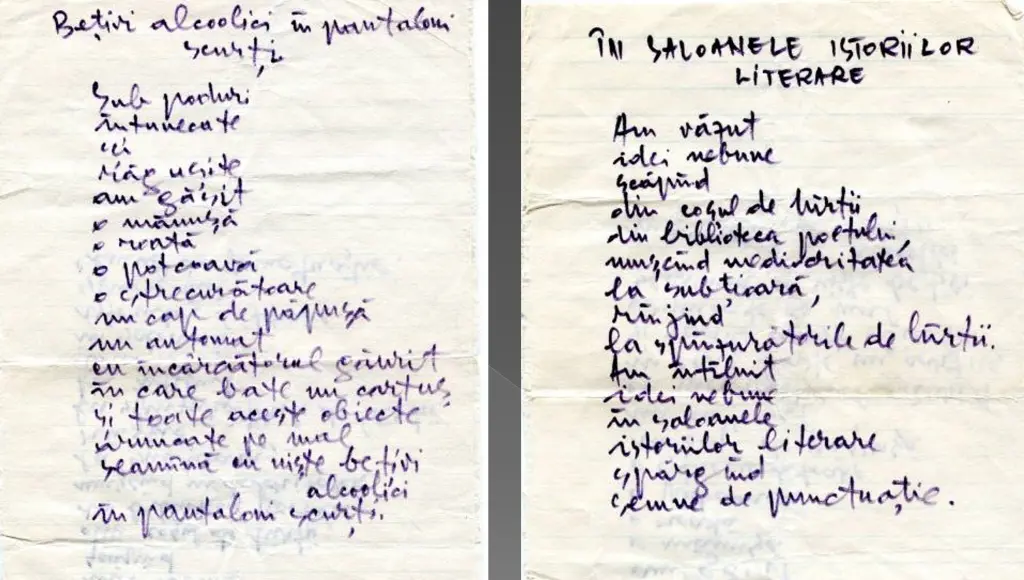 Bețivi alcoolici în pantaloni
scurți
Sub poduri
întunecate
și
răgușite
am găsit
o mănușă
o roată
o potcoavă
o strecurătoare
un cap de păpușă
un automat
cu încărcătorul găurit
în care bate un cartuș
și toate aceste obiecte
aruncate pe mal
seamînă cu niște bețivi
alcoolici
în pantaloni scurți.
ÎN SALOANELE ISTORIILOR
LITERARE
Am văzut
idei nebune
scăpînd
din coșul de hîrtii
din biblioteca poetului,
mușcînd mediocritatea
la subțioară,
rînjind
la spînzurătorile de hîrtii.
Am întîlnit
idei nebune
în saloanele
istoriilor literare
spărgînd
semne de punctuație.